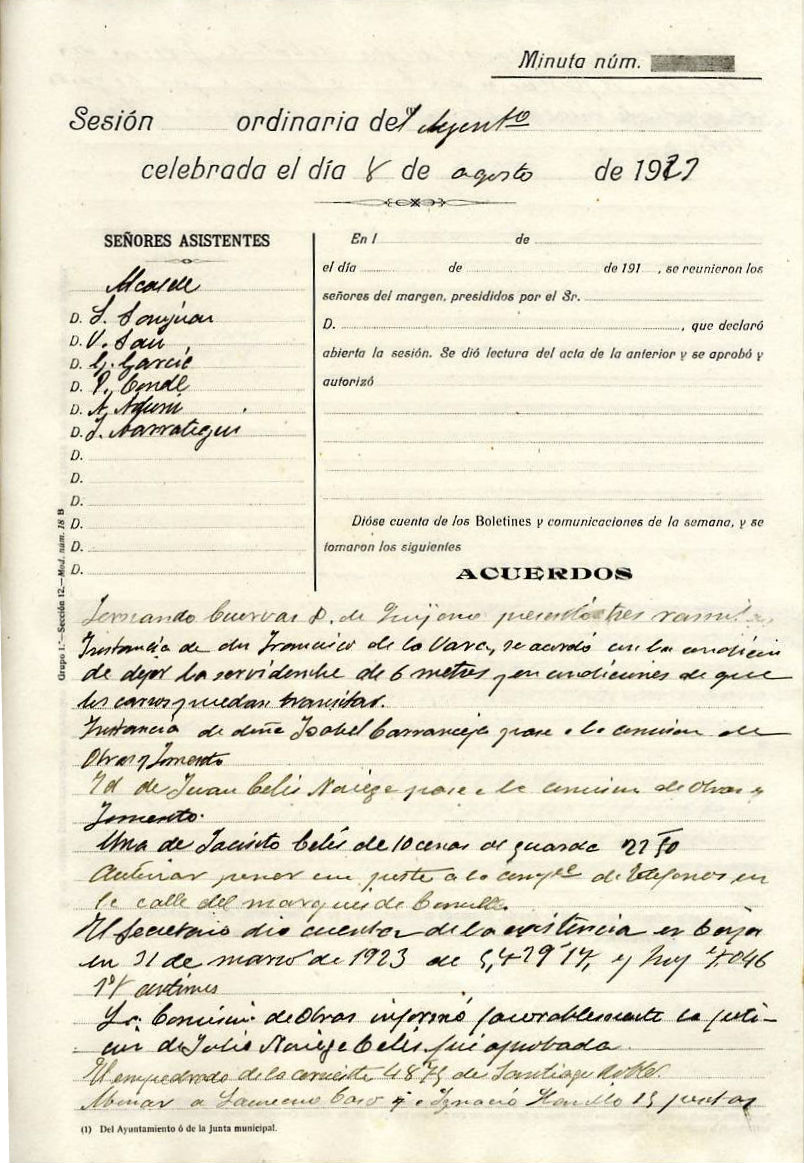 Minuta núm.
Sesión ordinaria del (1) Aynto
celebrada el día 8 de agosto de 1927
SEÑORES ASISTENTES
Alcalde
D. S. Sanjuan
D. V. San
D. G. García
D. P. Conde
D. A.
D. J. Barrategui
D.
D.
D.
D.
D.
D.
En l de
el día de de 191 , se reunieron los
señores del margen, presididos por el Sr.
D. , que declaró
abierta la sesión. Se dió lectura del acta de la anterior y se aprobó y
autorizó
Dióse cuenta de los Boletines y comunicaciones de la semana, y se
tomaron los siguientes
ACUERDOS
Fernando Cuevas P. de Quijano presentó tres
Instancia de don Francisco de la Vara, se acordó con la condición
de dejar la servidumbre de 6 metros y en condiciones de que
los carros puedan transitar.
Instancia de doña Isabel Carranceja pase a la comision de
Obras y Fomento
Id de Juan Celis Noriega pase a la comision de Obras y
Fomento.
Una de Jacinto Celis de 10 cenas de guarda 22 50
Autorizar poner un poste a la compª de Telefonos en
la calle del marqués de Comillas.
El Secretario dio cuenta de la existencia en Caja
en 31 de marzo de 1923 de 5,429'17, y hoy 7.046
18 centimos
La Comision de Obras informó favorablemente la peti-
cion de Julio Noriega Celis fué aprobada.
El empedrado de la corriente 48'75 de Santiago
Abonar a Laureano Caso y a Ignacio 15 pesetas
(1) Del Ayuntamiento ó de la Junta municipal.
Grupo 1.º—Sección 12.—Mod. núm. 18 B